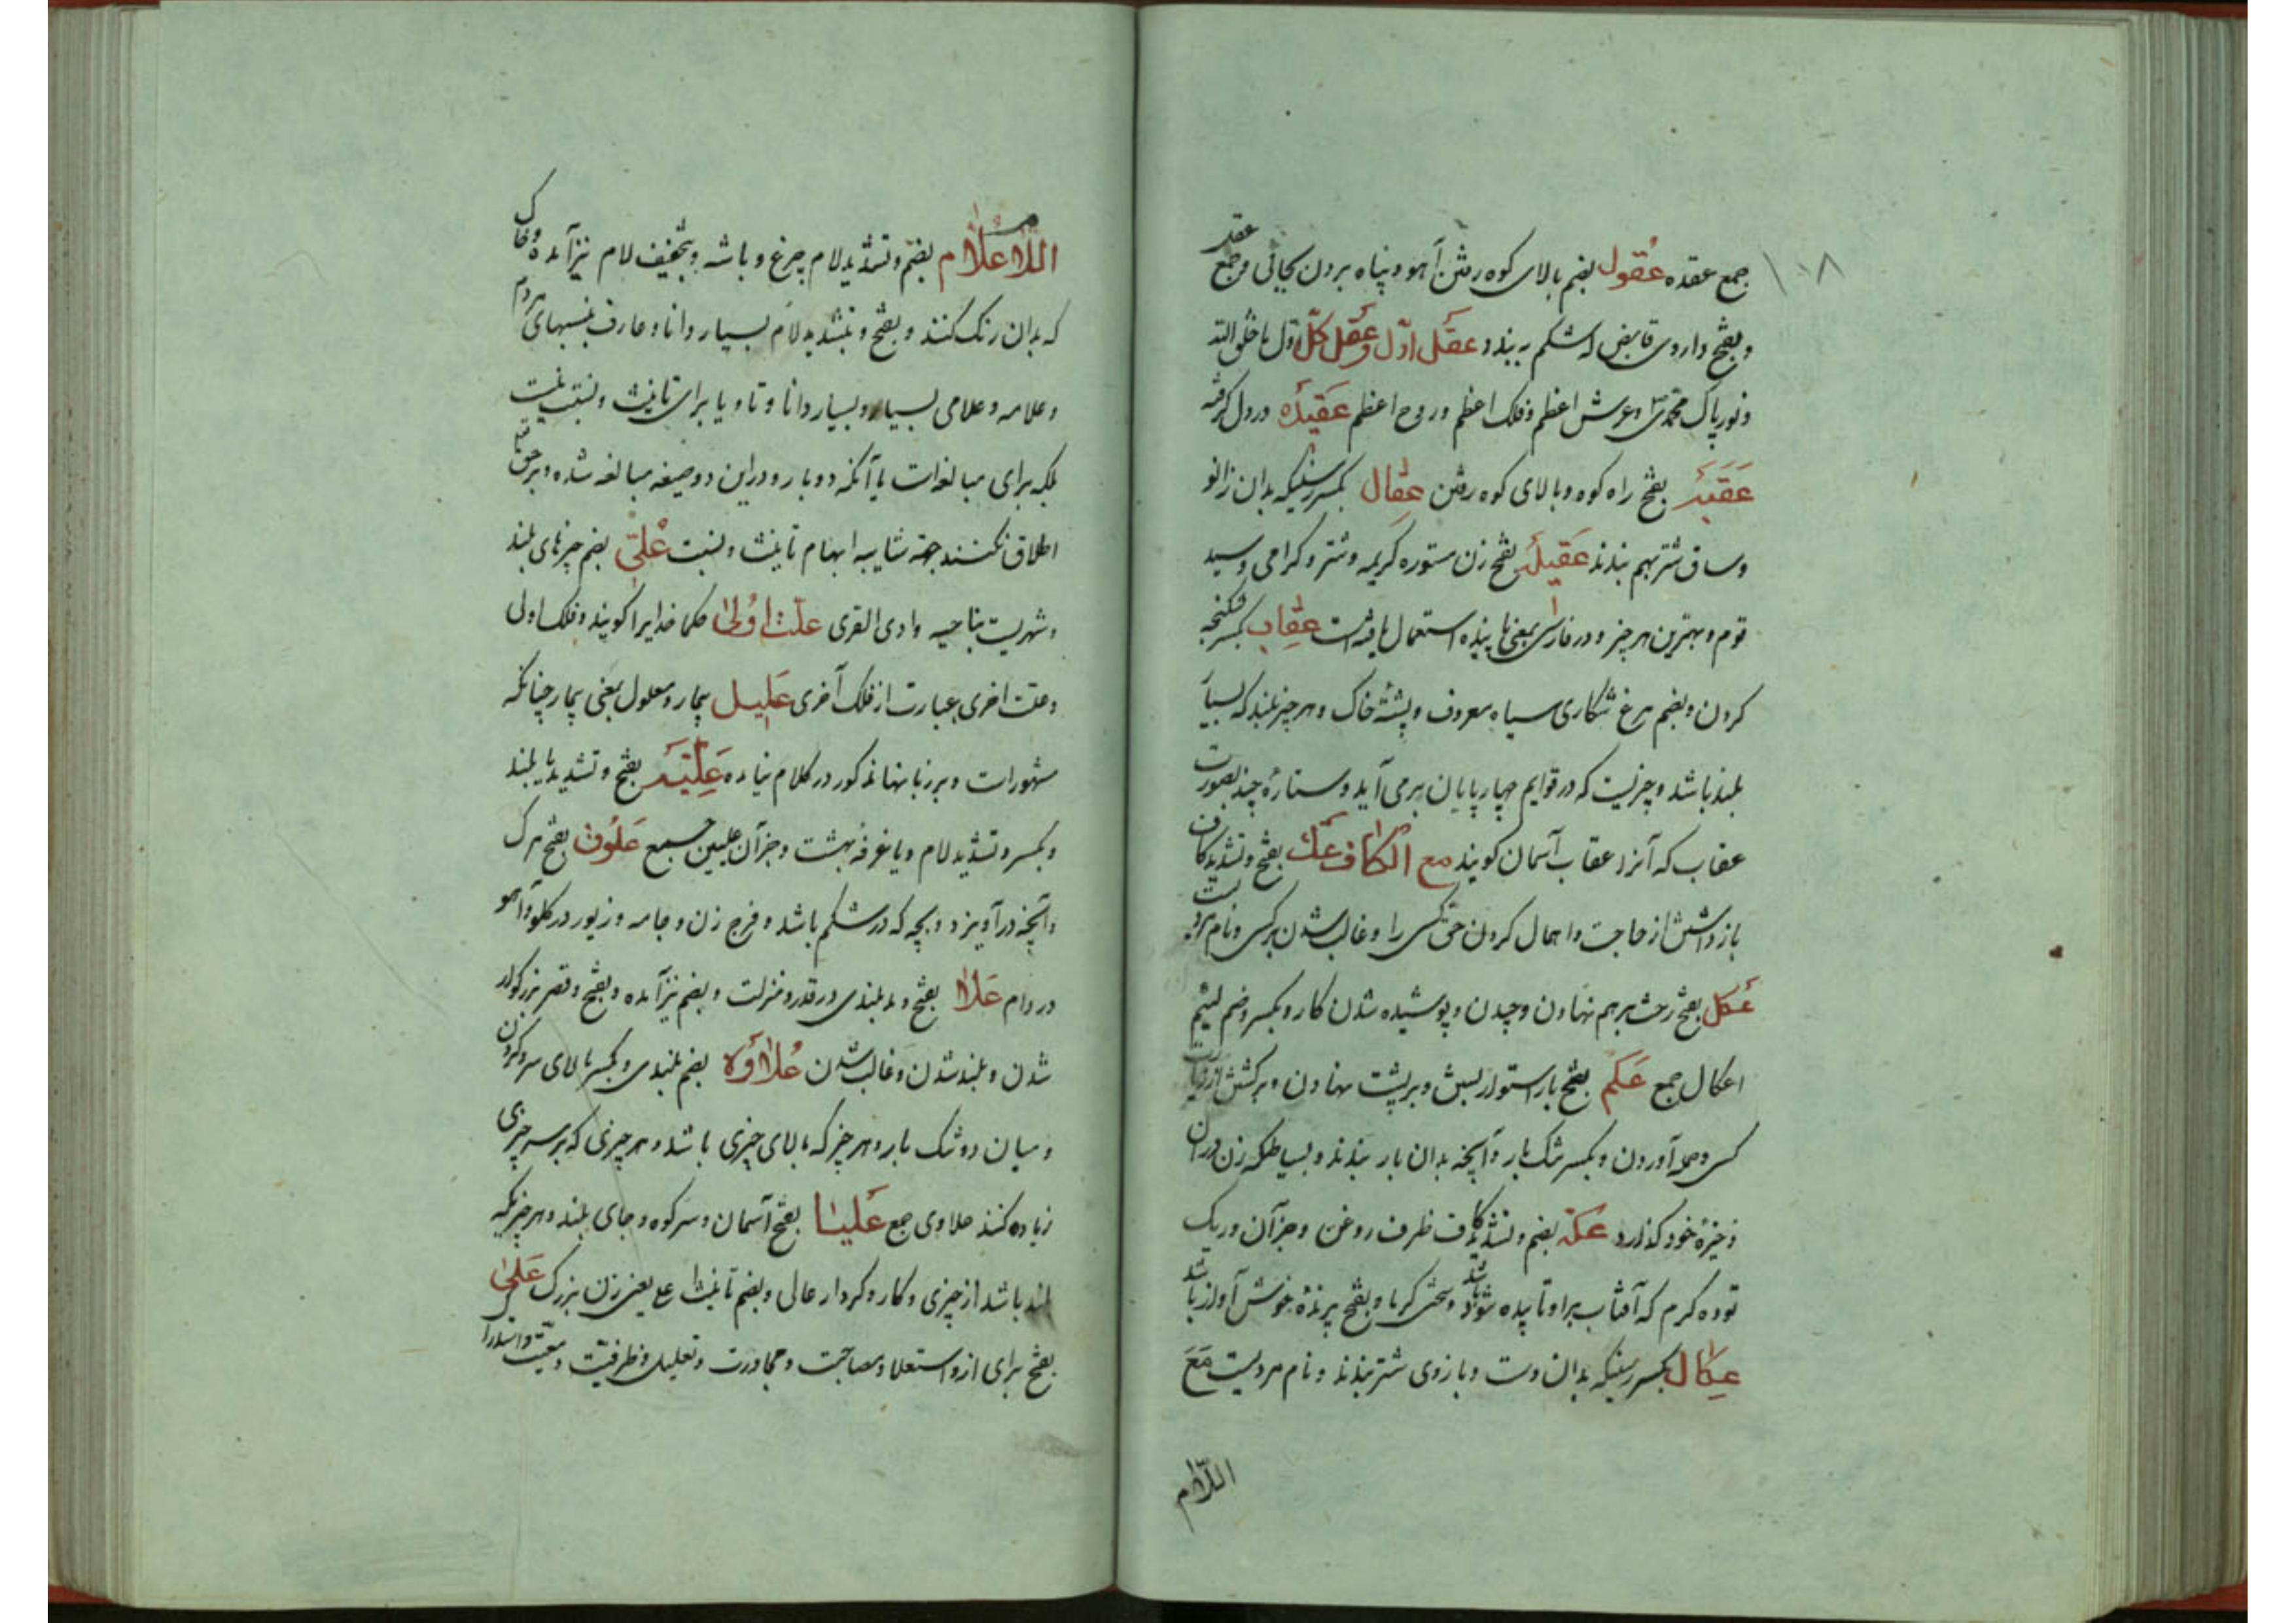 ۱۰۸
جمع عقده عُقول بضم بالای کوه رفتن آهو و پناه بردن بجائی و جمع عقل
و بفتح داروی قابض که شکم ببندد عقل اوّل و عقل کلّ اوّل ما خلق الله
و نور پاک محمدی و عرش اعظم و فلک اعظم و روح اعظم عَقیدَه در دل گرفته
عَقَبَه بفتح راه کوه و بالای کوه رفتن عِقال بکسر رسنیکه بدان زانو
و ساق شتر بهم بندند عَقیلَه بفتح زن مستوره کریمه و شتر گرامی و سید
قوم و بهترین هر چیز و در فارسی بمعنی پای بند استعمال یافته است عِقاب بکسر شکنجه
کردن و بضم مرغ شکاری سیاه معروف و پشتهٔ خاک و هر چیز بلند که بسیار
بلند باشد و چیزیست که در قوایم چهارپایان برمی آید و ستارهٔ چند بصورت
عقاب که آنرا عقاب آسمان گویند مع الکاف عَک بفتح و تشدید کاف
باز داشتن از حاجت و اهمال کردن حق کسی را و غالب شدن بر کسی و نام
عَکل بفتح رخت بر هم نهادن و چیدن و پوشیده شدن کار و بکسر و ضم لئیم
اعکال جمع عَکم بفتح بار استوار بستن و بر پشت نهادن و برگشتن از زیارت
کسی و حمله آوردن و بکسر تنگ بار و آنچه بدان بار بندند و بساطکه زن در آن
ذخیرهٔ خود گذارد عُکّه بضم و تشدید کاف ظرف روغن و جز آن و ریک
توده گرم که آفتاب بر او تابیده باشد و سختی گرما و بفتح پرندهٔ خوش آواز باشد
عِکال بکسر رسنیکه بدان دست و بازوی شتر بندند و نام مردیست مَعَ
اللّام
اللّام عُلّام بضم و تشدید لام چرغ و باشه و بتخفیف لام نیز آمده و خاک
که بدان رنگ کنند و بفتح و بتشدید لام بسیار دانا و عارف بنسبهای مردم
و علامه و علامی بسیار و بسیار دانا و تا و یا برای تانیث و نسبت نیست
بلکه برای مبالغه است یا آنکه دو بار و در این دو صیغه مبالغه شده و بر حق تعالی
اطلاق نکنند جهة شایبه ابهام تانیث و نسبت عُلیّ بضم چیزهای بلند
و شهریست بناحیه وادی القری علّت اُولیٰ حکما خدایرا گویند و فلک اولی
و علّت اخری عبارت از فلک آخری عَلیل بیمار و معلول بمعنی بیمار چنانکه
مشهورات و بر زبانها مذکور در کلام نیامده عَلِیَّه بفتح و تشدید یا بلند
و بکسر و تشدید لام و یا غرفهٔ بهشت و جز آن علیین جمع عَلُوق بفتح مرگ
و آنچه در آویزد و بچه که در شکم باشد و فرج زن و جامه و زیور در گلو و آهو
در دام عَلاء بفتح و مد بلندی در قدر و منزلت و بضم نیز آمده و بفتح و قصر بزرگوار
شدن و بلند شدن و غالب شدن عُلاوَه بضم بلندی و بکسر بالای سر و گردن
و میان دو تنگ بار و هر چیز که بالای چیزی باشد و هر چیزی که بر سر چیزی
زیاده کنند علاوی جمع عَلیا بفتح آسمان و سر کوه و جای بلند و هر چیزیکه
بلند باشد از چیزی و کار و کردار عالی و بضم تانیث اعلی یعنی زن بزرگ عَلیٰ
بفتح برای از و استعلا و مصاحبت و مجاورت و تعلیل و ظرفیّت و معیّت و استدراک